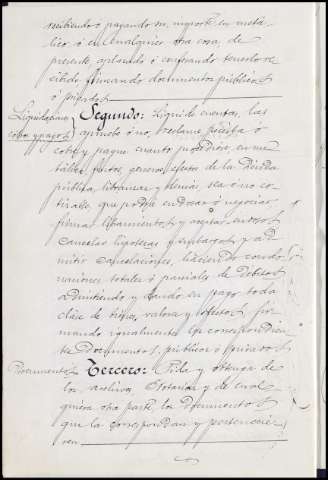 recibiendo ó pagando su importe en metá-
lico ó en cualquier otra cosa, de
presente, aplazado ó confesando tenerlo re-
cibido otorgando documentos públicos
ó privados
Liquidaciones cobro y pagos Segundo: Liquide cuentas, las
apruebe ó no, reclame, perciba ó
cobre y pague cuanto proceda, en me-
tálico, frutos, géneros, efectos de la deuda
pública, libranzas y demás sea ó no co-
tizable, que podrá endosar ó negociar
firmar libramientos y aceptar endosos
cancelar hipotecas y embargos y ad-
mitir cancelaciones, haciendo condo-
naciones totales ó parciales de débitos
admitiendo y dando en pago toda
clase de bienes, valores y efectos fir-
mando igualmente los correspondien-
tes documentos, públicos ó privados
Documentos Tercero: Pida y obtenga de
los archivos, Notarías y de cual-
quiera otra parte los documentos
que la correspondan y pertenecie-
ren